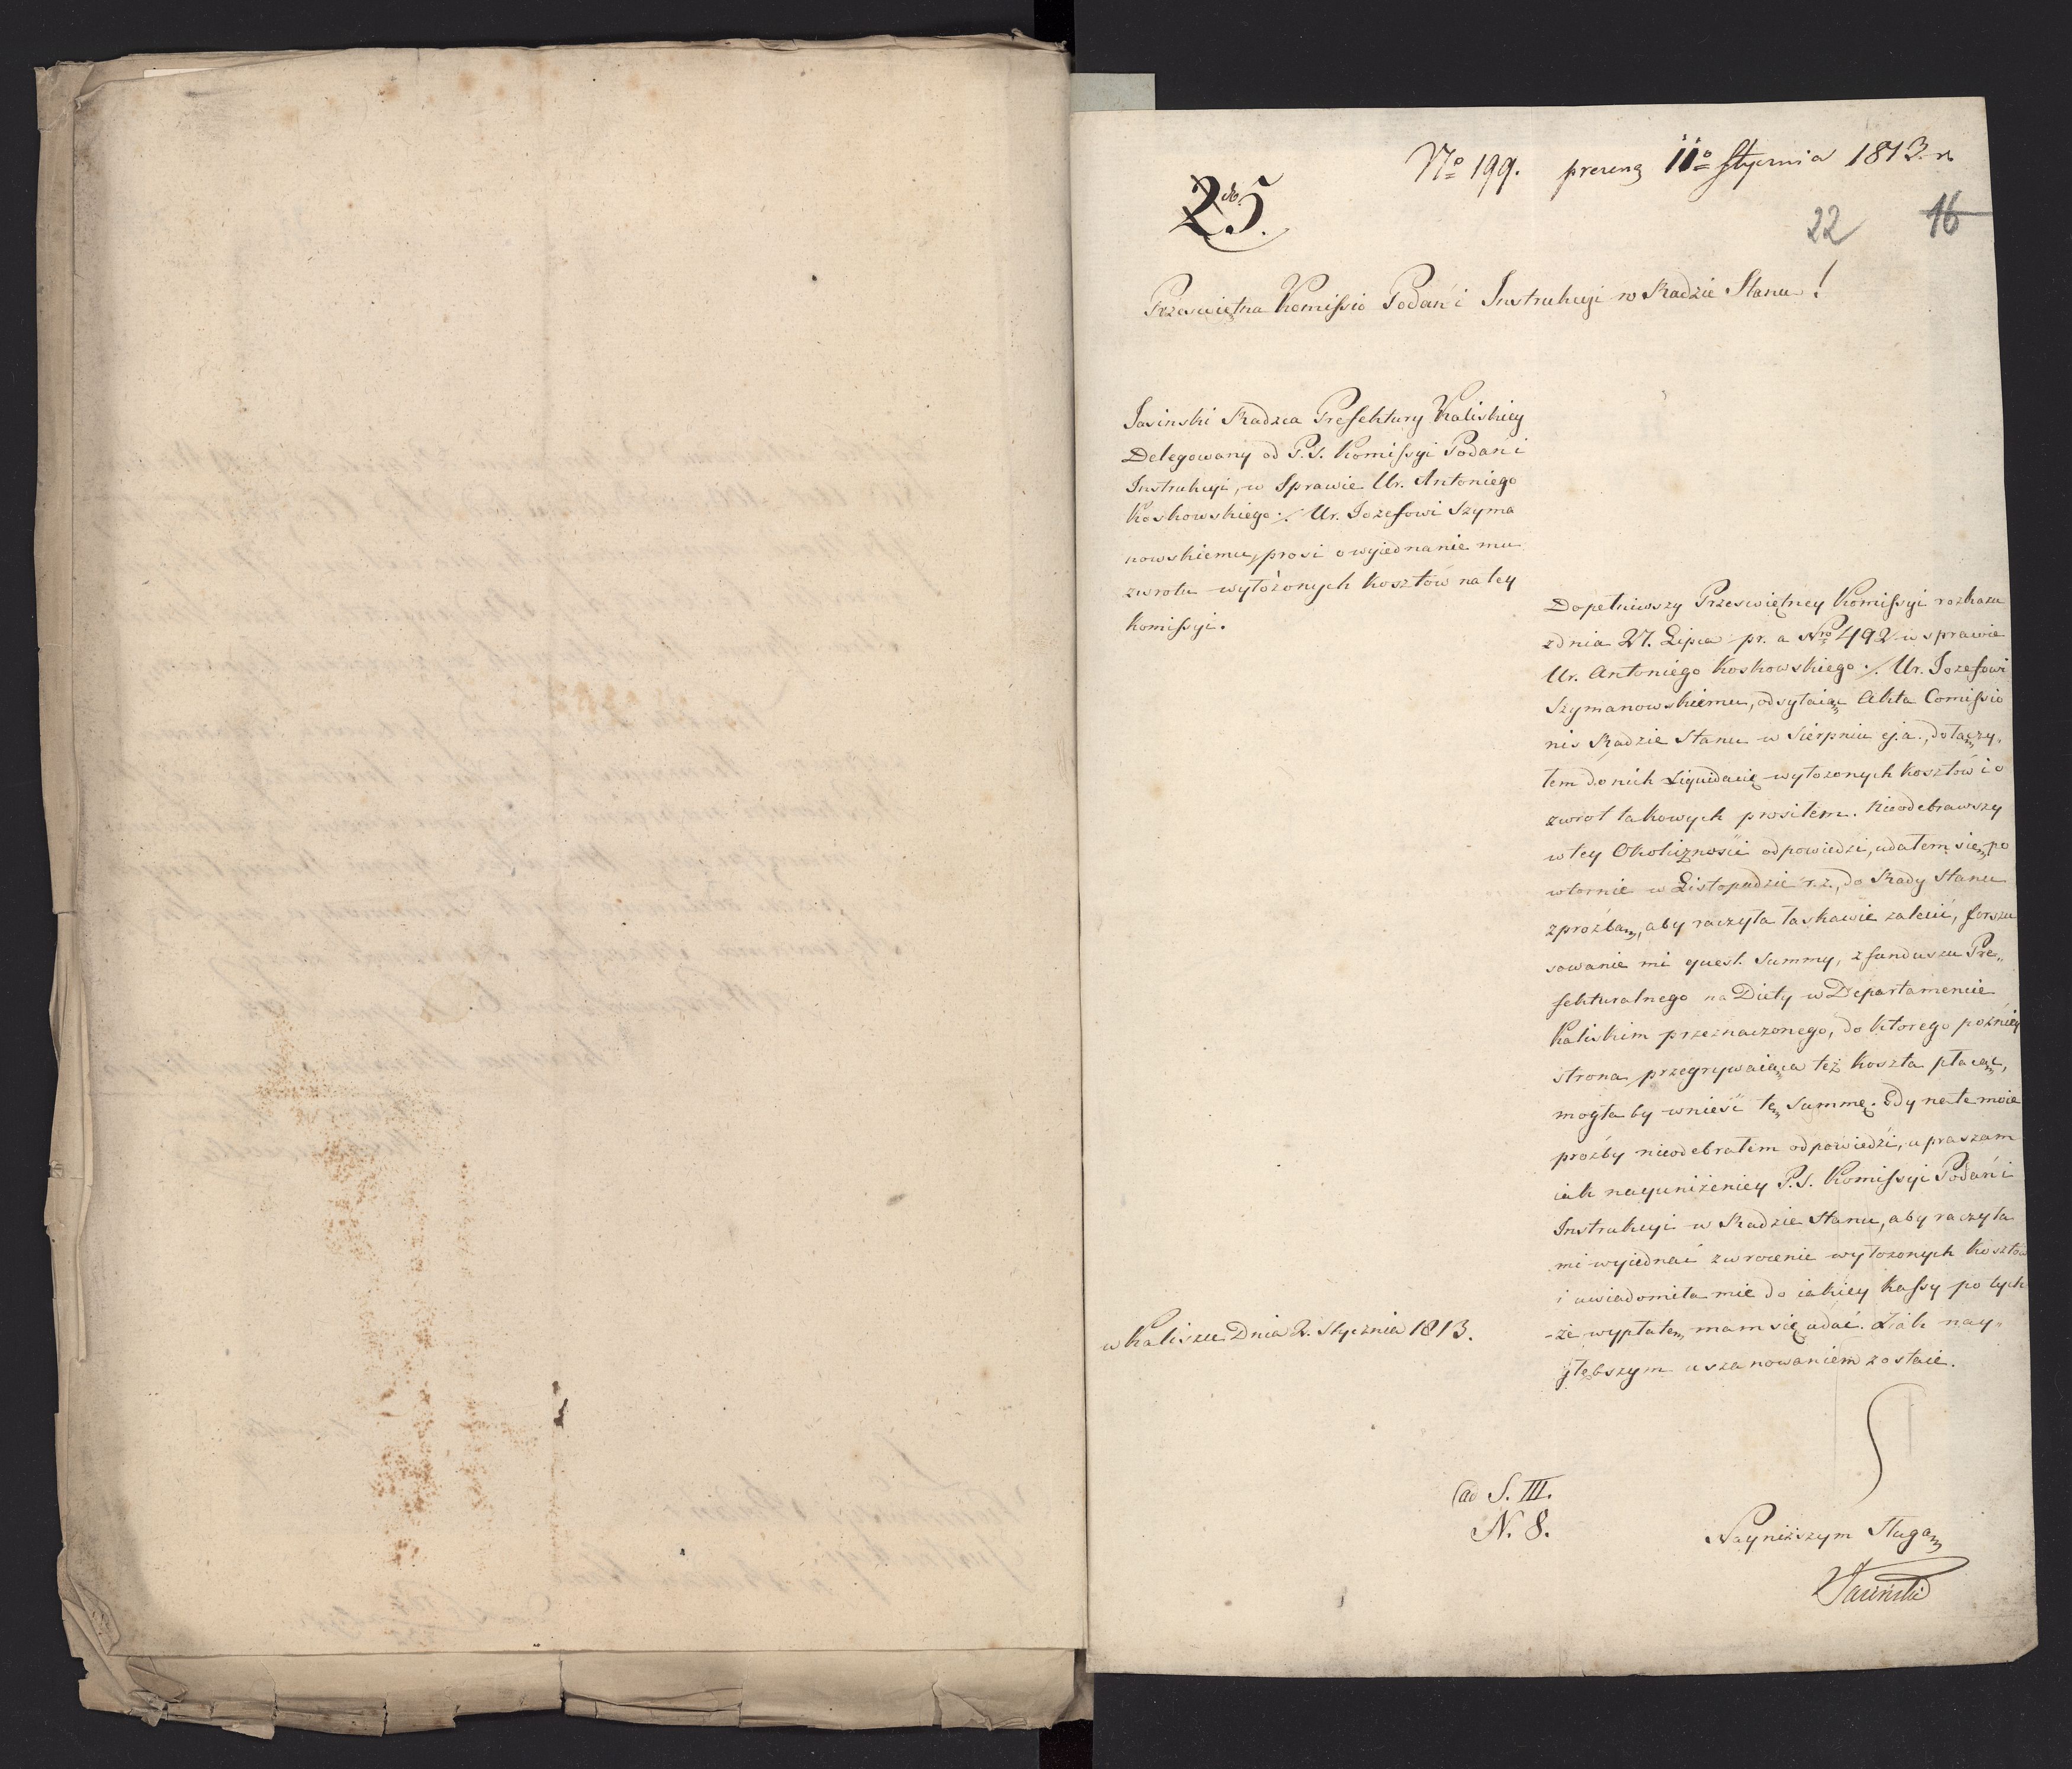 Nº 199. prezeng 11º Stycznia 1813. r.
25.
22 16
Przeswiętna Komissio Podań i Instrukcyi w Radzie Stanu!
Jasinski Radzca Prefektury Kaliskiey
Delegowany od P.S. Komissyi Podań i
Instrukcyi, w Sprawie Ur. Antoniego
Koskowskiego ./. Ur. Jozefowi Szyma
nowskiemu, prosi o wyiednanie mu
zwrotu wyłożonych kosztów na tey
Komissyi.
Dopełniwszy Przeswiętney Komissyi rozkazu
z dnia 27. Lipca pr. a Nro 492 w sprawie
Ur. Antoniego Koskowskiego ./. Ur. Jozefowi
Szymanowskiemu, odsyłaiąc Akta Comissio
nis Radzie Stanu w Sierpniu ej. a., dołączy„
łem do nich Liquidacię wyłozonych kosztów i o
zwrot takowych prosiłem. Nieodebrawszy
w tey Okoliczności odpowiedzi, udałem się po
wtornie w Listopadzie r. z., do Rady Stanu
z proźbą, aby raczyła łaskawie zalecić, forszu
sowanie mi quest. Summy, z funduszu Pre„
fekturalnego na Diety w Departamencie
Kaliskim przeznaczonego, do ktorego pożniey
strona przegrywaiąca też koszta płacąc,
mogłaby wnieść tę Summę. Gdy na te moie
proźby nieodebrałem odpowiedźi, upraszam
iak nayuniżeniey P.S. Komissyi Podań i
Instrukcyi w Radzie Stanu, aby raczyła
mi wyiednać zwrocenie wyłozonych kosztów
i uwiadomiła mie do iakiey Kassy po tych
-że wypłatę mam się udać. Z iak nay„
głębszym uszanowaniem zostaie.
w Kaliszu Dnia 2. Stycznia 1813.
ad S. III.
N. 8.
Nayniższym Sługą
Jasiński